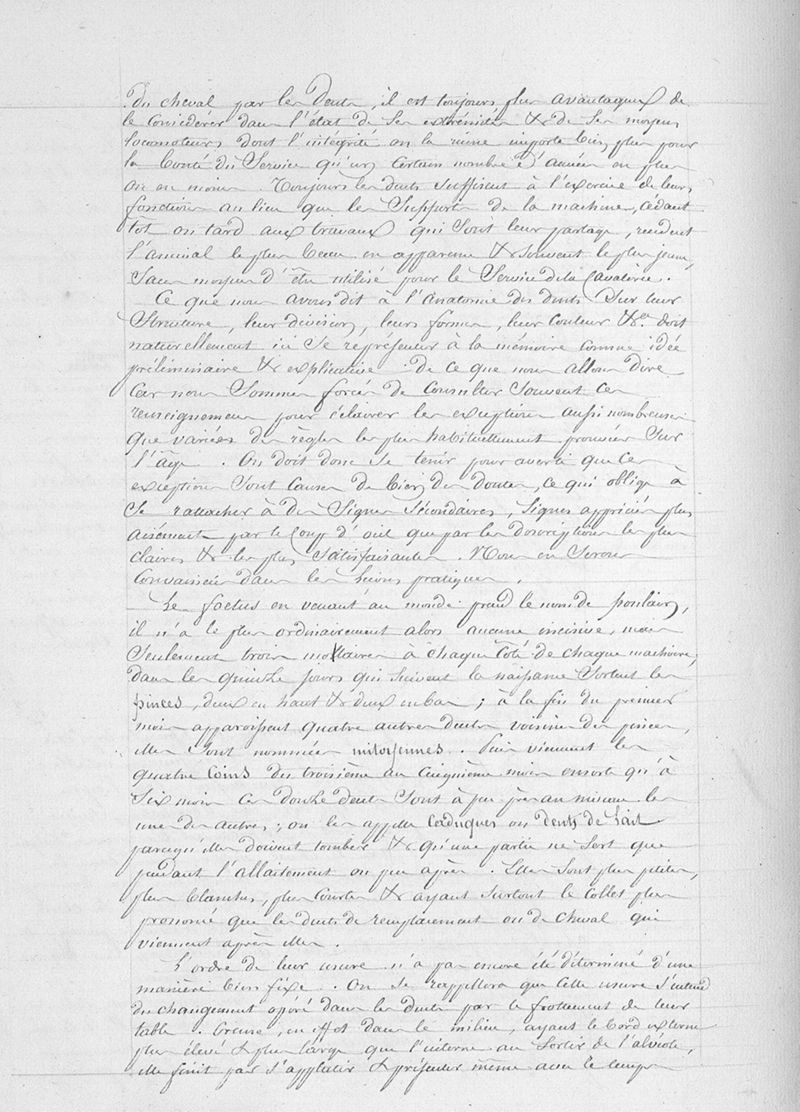 du cheval par les Dents, il est toujours plus avantageux de
le Considérer dans l'état de ses extrémités & de ses moyens
locomoteurs dont l'intégrité ou la ruine importe bien plus pour
la bonté du Service qu'un certain nombre d'années en plus
ou en moins. Toujours les dents suffisent à l'exercice de leurs
fonctions au lieu que les Supports de la machine, cédant
tôt ou tard aux travaux qui sont leur partage, rendent
l'animal le plus beau en apparence & souvent le plus jeune,
Sans moyen d'être utilisé pour le Service de la Cavalerie.
Ce que nous avons dit à l'anatomie des dents Sur leur
Structure, leur division, leurs formes, leur Couleur &ca doit
naturellement ici Se représenter à la mémoire comme idée
préliminaire & explicative de ce que nous allons dire
Car nous Sommes forcés de Consulter Souvent ces
renseignemens pour éclairer les exceptions aussi nombreuses
que variées des règles les plus habituellement prouvées Sur
l'âge. On doit donc Se tenir pour averti que ces
exceptions Sont Causes de bien des doutes, ce qui oblige à
Se rattacher à des Signes Secondaires, Signes appréciés plus
aisément par le Coup d'oeil que par les descriptions les plus
claires & les plus Satisfaisantes. Nous en Serons
Convaincus dans les Leçons pratiques.
Le foetus en venant au monde prend le nom de poulain,
il n'a le plus ordinairement alors aucune incisive, mais
Seulement trois molaires à chaque Côté de chaque machoire,
dans les quinze jours qui Suivent la naissance Sortent les
pinces, deux en haut & deux en bas; à la fin du premier
mois apparoissent quatre autres dents voisines des pinces,
elles Sont nommées mitoyennes. Puis viennent les
quatre Coins du troisième au Cinquième mois ensorte qu'à
Six mois ces douze dents Sont à peu près au niveau les
unes des autres; on les appelle Caduques ou dents de Lait
parcequ'elles doivent tomber & qu'une partie ne Sert que
pendant l'allaitement ou peu après. Elles Sont plus petites,
plus blanches, plus Courtes & ayant Surtout le Collet plus
prononcé que les dents de remplacement ou de Cheval qui
viennent après elles.
L'ordre de leur usure n'a pas encore été déterminé d'une
manière bien fixe. On Se rappellera que Cette usure S'entend
du changement opéré dans les dents par le frottement de leur
table. Creuse, en effet dans le milieu, ayant le bord externe
plus élevé & plus large que l'interne au Sortir de l'alvéole,
elle finit par S'applatir & présenter même avec le temps